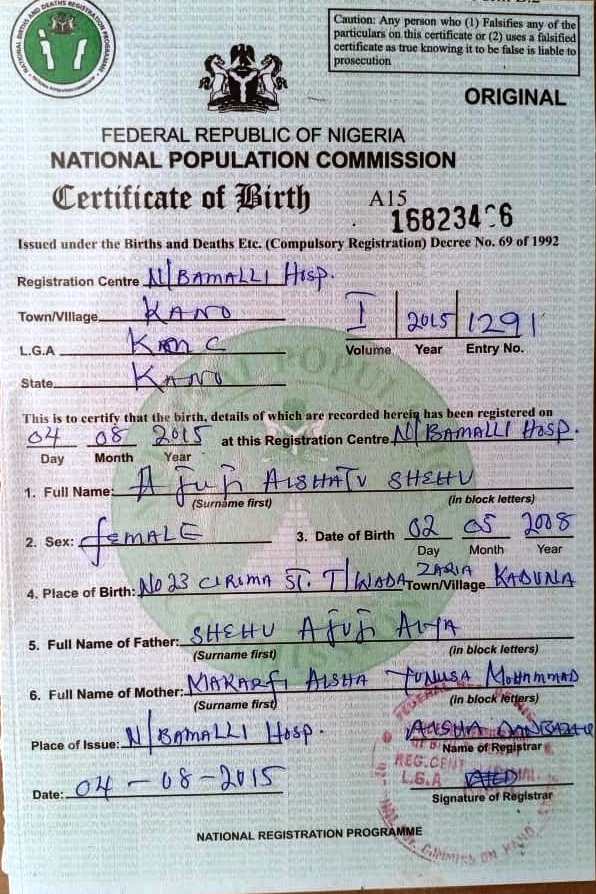 NATIONAL BIRTHS AND DEATHS REGISTRATION PROGRAMME
Caution: Any person who (1) Falsifies any of the
particulars on this certificate or (2) uses a falsified
certificate as true knowing it to be false is liable to
prosecution
ORIGINAL
FEDERAL REPUBLIC OF NIGERIA
NATIONAL POPULATION COMMISSION
Certificate of Birth A15
Issued under the Births and Deaths Etc. (Compulsory Registration) Decree No. 69 of 1992
Registration Centre N/BAMALLI Hosp.
Town/Village KANO I 2015 1291
L.G.A Volume Year Entry No.
State KANO
This is to certify that the birth, details of which are recorded herein has been registered on
04 08 2015 at this Registration Centre N/BAMALLI Hosp.
Day Month Year
1. Full Name: AJUJI AISHATU SHEHU
(Surname first) (in block letters)
2. Sex: female 3. Date of Birth 02 05 2008
Day Month Year
4. Place of Birth: No 23 ST. T/WADA ZARIA Town/Village KADUNA
5. Full Name of Father: SHEHU AJUJI
(Surname first) (in block letters)
6. Full Name of Mother: MAKARFI AISHA YUNUSA MOHAMMAD
(Surname first) (in block letters)
Place of Issue: N/BAMALLI Hosp. AISHA
Name of Registrar
Date: 04-08-2015
Signature of Registrar
REG.CENT
L.G.A
NATIONAL REGISTRATION PROGRAMME